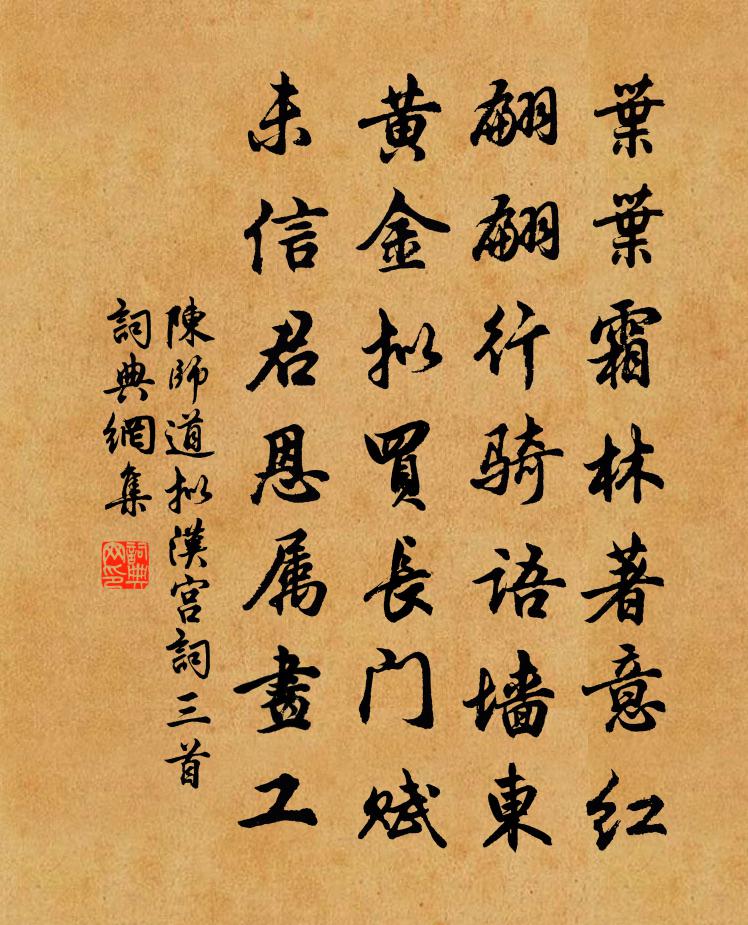 葉葉霜林著意紅
翩翩行騎語墙東
黄金拟買長门賦
未信君恩属畫工
陳師道拟漢宫詞三首
詞典網集
詞典网印